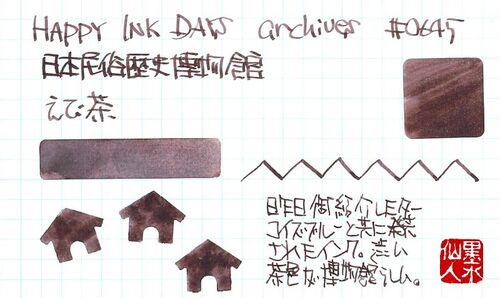 HAPPY INK DAYS archives #0645
日本民俗歴史博物館
えび茶
昨日御紹介したター
コイズブルーと共に
されたインク。渋い
茶色が博物館らしい。
墨水
仙人